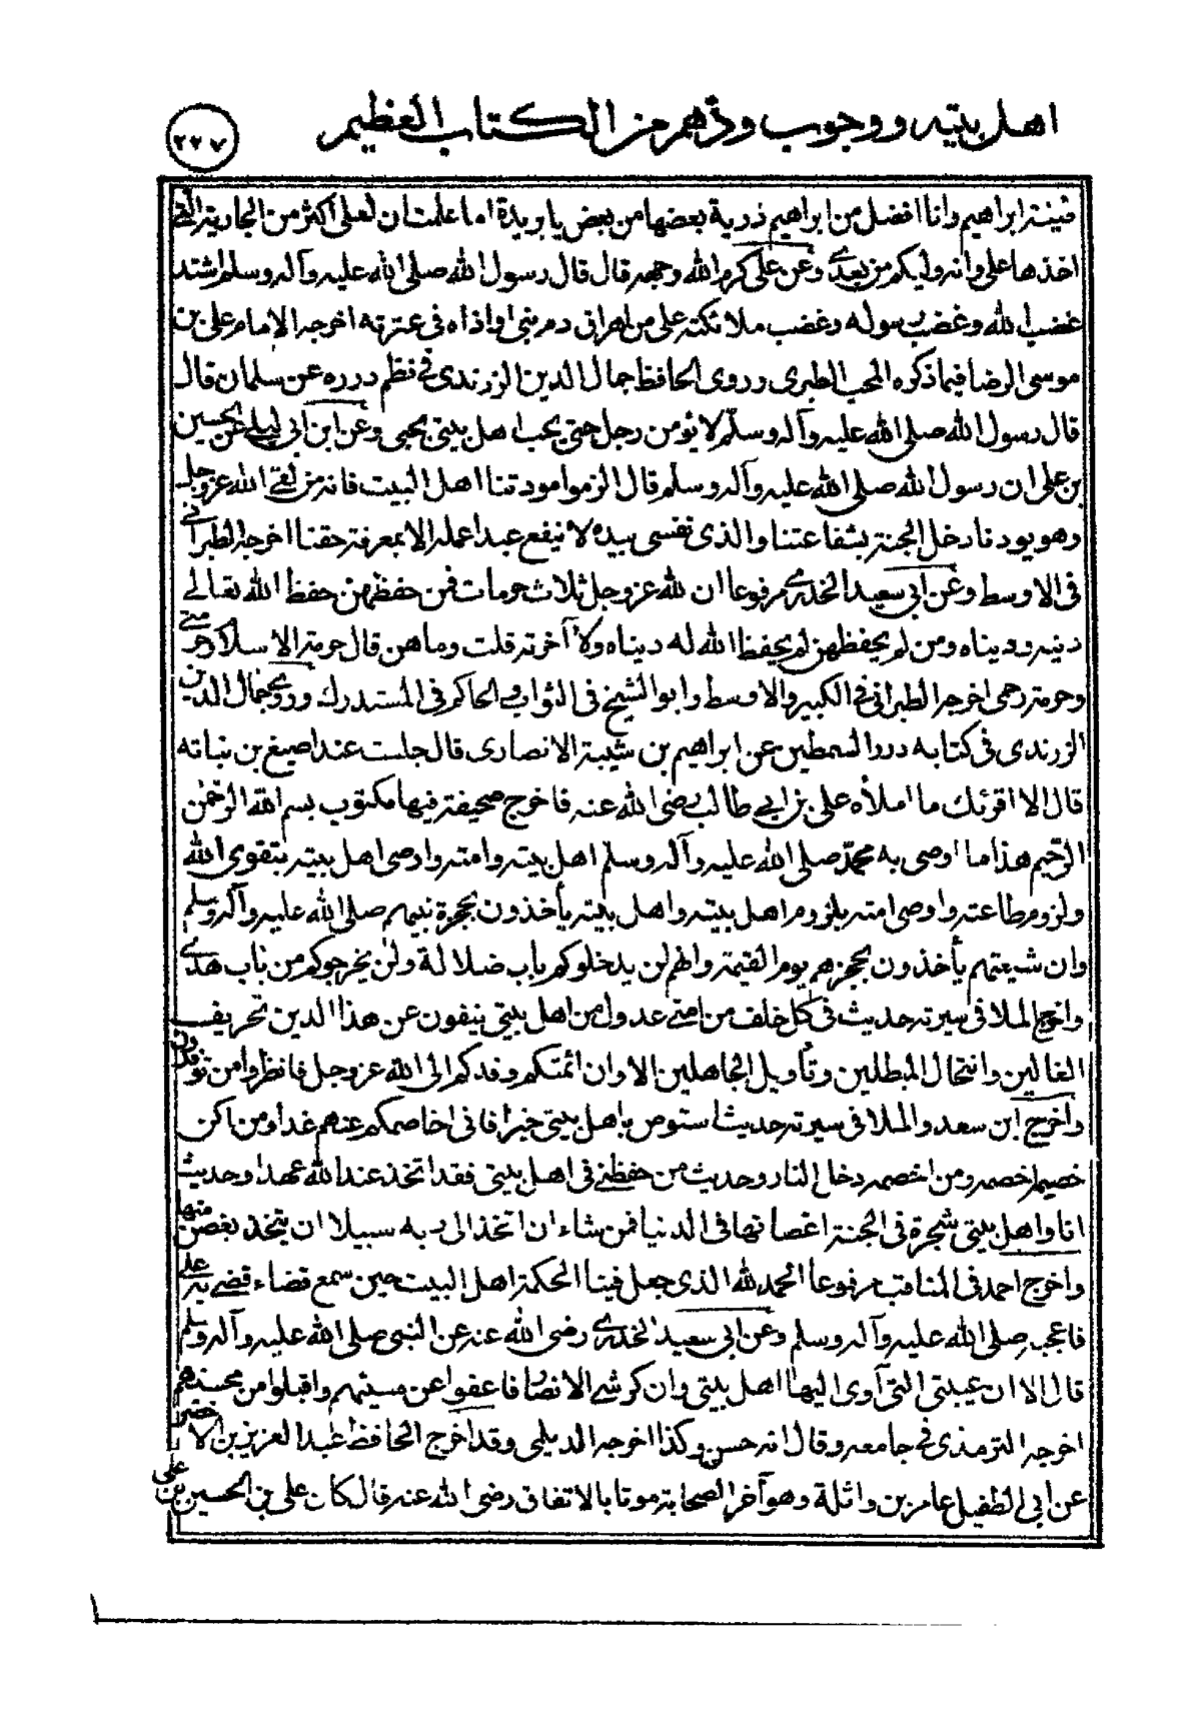 اهل بيته ووجوب ودهم من الكتاب العظيم
٢٢٧
طينة ابراهيم وانا افضل من ابراهيم ذرية بعضها من بعض يا بريدة اما علمت ان لعلى اكثر من الجارية التى
اخذها على وانه وليكم من بعدى وعن على كرم الله وجهه قال قال رسول الله صلى الله عليه وآله وسلم اشتد
غضب الله وغضب رسوله وغضب ملائكته على من اهراق دم نبى او اذاه فى عترته اخرجه الامام على بن
موسى الرضا فيما ذكره المحب الطبرى وروى الحافظ جمال الدين الزرندى فى نظم درره عن سلمان قال
قال رسول الله صلى الله عليه وآله وسلم لا يؤمن رجل حتى يحب اهل بيتى بحبى وعن ابن ابى ليلى عن الحسين
بن على ان رسول الله صلى الله عليه وآله وسلم قال الزموا مودتنا اهل البيت فانه من لقى الله عز وجل
وهو يودنا دخل الجنة بشفاعتنا والذى نفسى بيده لا ينفع عبدا عمله الا بمعرفة حقنا اخرجه الطبرانى
فى الاوسط وعن ابى سعيد الخدرى مرفوعا ان لله عز وجل ثلاث حرمات فمن حفظهن حفظ الله تعالى
دنيه ودنياه ومن لم يحفظهن لم يحفظ الله له دنياه ولا آخرته قلت وما هن قال حرمة الاسلام وحرمتى
وحرمة رحمى اخرجه الطبرانى فى الكبير والاوسط وابو الشيخ فى الثواب والحاكم فى المستدرك وروى جمال الدين
الزرندى فى كتابه درر السمطين عن ابراهيم بن شيبة الانصارى قال جلست عند اصبغ بن نباته
قال الا اقرئك ما املأه على بن ابى طالب رضى الله عنه فاخرج صحيفة فيها مكتوب بسم الله الرحمن
الرحيم هذا ما اوصى به محمد صلى الله عليه وآله وسلم اهل بيته وامته واوصى اهل بيته بتقوى الله
ولزوم طاعته واوصى امته بلزوم اهل بيته واهل بيته يأخذون بحجزة نبيهم صلى الله عليه وآله وسلم
وان شيعتهم يأخذون بحجزهم يوم القيمة وانهم لن يدخلوكم باب ضلالة ولن يخرجوكم من باب هدى
واخرج الملا فى سيرته حديث فى كل خلف من امتى عدول من اهل بيتى ينفون عن هذا الدين تحريف
الغالين وانتحال المبطلين وتأويل الجاهلين الا وان ائمتكم وفدكم الى الله عز وجل فانظروا من توفدون
واخرج ابن سعد والملا فى سيرته حديث استوص باهل بيتى خيرا فانى اخاصمكم عنهم غدا ومن اكن
خصيمه اخصمه ومن اخصمه دخل النار وحديث من حفظنى فى اهل بيتى فقد اتخذ عند الله عهدا وحديث
انا واهل بيتى شجرة فى الجنة اغصانها فى الدنيا فمن شاء ان اتخذ الى ربه سبيلا ان يتخذ بغصن منها
واخرج احمد فى المناقب مرفوعا الحمد لله الذى جعل فينا الحكمة اهل البيت حين سمع قضاء قضى به على
فاعجب صلى الله عليه وآله وسلم وعن ابى سعيد الخدرى رضى الله عنه عن النبى صلى الله عليه وآله وسلم
قال الا ان عيبتى التى آوى اليها اهل بيتى وان كرشى الانصار فاعفوا عن مسيئهم واقبلوا من محسنهم
اخرجه الترمذى فى جامعه وقال انه حسن وكذا اخرجه الديلمى وقد اخرج الحافظ عبد العزيز بن الاخضر
عن ابى الطفيل عامر بن واثلة وهو آخر الصحابة موتا بالاتفاق رضى الله عنه قال كان على بن الحسين بن على